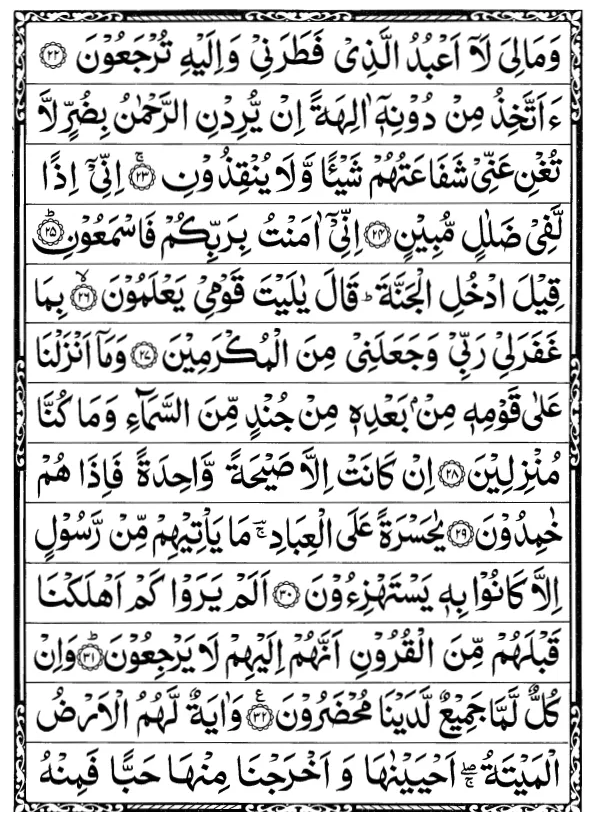 وَمَالِیَ لَاۤ اَعْبُدُ الَّذِیْ فَطَرَنِیْ وَاِلَیْهِ تُرْجَعُوْنَ ﴿۲۲﴾
ءَاَتَّخِذُ مِنْ دُوْنِهٖۤ اٰلِهَةً اِنْ یُّرِدْنِ الرَّحْمٰنُ بِضُرٍّ لَّا
تُغْنِ عَنِّیْ شَفَاعَتُهُمْ شَیْـًٔا وَّلَا یُنْقِذُوْنِ ۚ﴿۲۳﴾ اِنِّیْۤ اِذًا
لَّفِیْ ضَلٰلٍ مُّبِیْنٍ ﴿۲۴﴾ اِنِّیْۤ اٰمَنْتُ بِرَبِّكُمْ فَاسْمَعُوْنِ ؕ﴿۲۵﴾
قِیْلَ ادْخُلِ الْجَنَّةَ ؕ قَالَ یٰلَیْتَ قَوْمِیْ یَعْلَمُوْنَ ۙ﴿۲۶﴾ بِمَا
غَفَرَلِیْ رَبِّیْ وَجَعَلَنِیْ مِنَ الْمُكْرَمِیْنَ ﴿۲۷﴾ وَمَاۤ اَنْزَلْنَا
عَلٰی قَوْمِهٖ مِنْۢ بَعْدِهٖ مِنْ جُنْدٍ مِّنَ السَّمَآءِ وَمَا كُنَّا
مُنْزِلِیْنَ ﴿۲۸﴾ اِنْ كَانَتْ اِلَّا صَیْحَةً وَّاحِدَةً فَاِذَا هُمْ
خٰمِدُوْنَ ﴿۲۹﴾ یٰحَسْرَةً عَلَی الْعِبَادِ ۚ مَا یَاْتِیْهِمْ مِّنْ رَّسُوْلٍ
اِلَّا كَانُوْا بِهٖ یَسْتَهْزِءُوْنَ ﴿۳۰﴾ اَلَمْ یَرَوْا كَمْ اَهْلَكْنَا
قَبْلَهُمْ مِّنَ الْقُرُوْنِ اَنَّهُمْ اِلَیْهِمْ لَا یَرْجِعُوْنَ ؕ﴿۳۱﴾ وَاِنْ
كُلٌّ لَّمَّا جَمِیْعٌ لَّدَیْنَا مُحْضَرُوْنَ ﴿۳۲﴾ ع وَاٰیَةٌ لَّهُمُ الْاَرْضُ
الْمَیْتَةُ ۖۚ اَحْیَیْنٰهَا وَ اَخْرَجْنَا مِنْهَا حَبًّا فَمِنْهُ